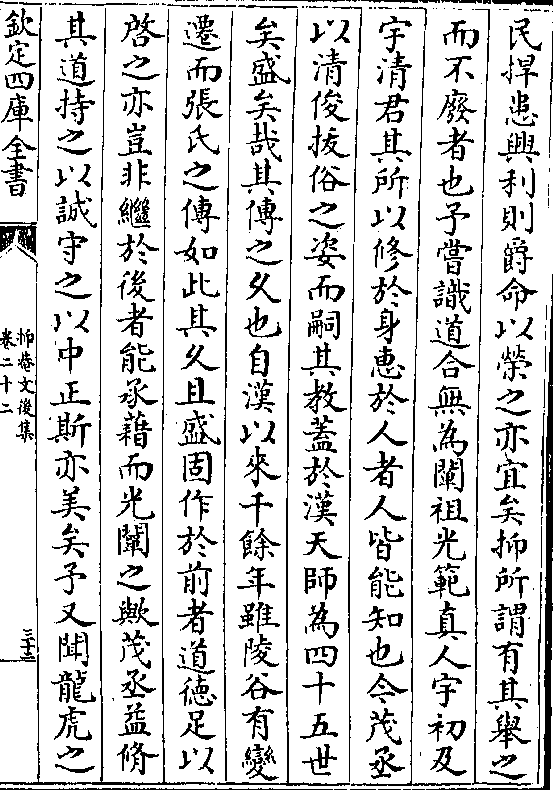 民捍患興利則爵命以榮之亦宜矣抑所謂有其舉之
而不廢者也予嘗識道合無為闡祖光範真人宇初及
宇清君其所以修於身惠於人者人皆能知也今茂丞
以清俊拔俗之姿而嗣其教蓋於漢天師為四十五世
矣盛矣哉其傳之久也自漢以來千餘年雖陵谷有變
遷而張氏之傳如此其久且盛固作於前者道德足以
啓之亦豈非繼於後者能承藉而光闡之歟茂丞益脩
其道持之以誠守之以中正斯亦美矣予又聞龍虎之
欽定四庫全書
抑菴文後集
卷二十二
三十三